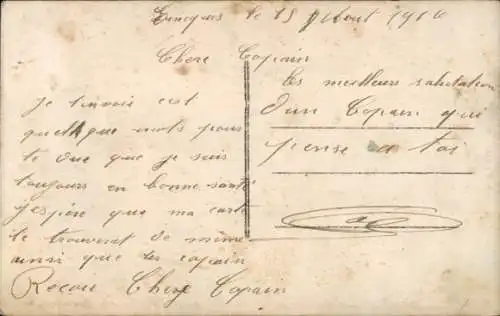 le 15 Aout 1916
Chere Copain
Je t'envoie cest
quelque mots pour
te dire que je suis
toujours en bonne santé
j'espère que ma carte
te trouverat de même
ainsi que tes copain
Recou Chere Copain
Les meilleurs salutation
d'un Copain qui
pense a toi